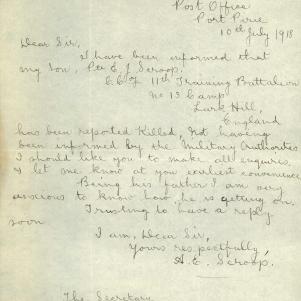 Post Office
Port Pirie
10th July 1918
Dear Sir,
I have been informed that
my son, Pte E. J. Scroop,
C Co 11th Training Battalion
No 13 Camp
Lark Hill,
England
has been reported Killed, Not having
been informed by the Military Authorities
I should like you to make all enquires,
& let me know at you earliest convenience
Being his father I am very
anxious to know how he is getting on.
Trusting to have a reply
soon
I am, Dear Sir,
Yours respectfully,
A. E. Scroop.
The Secretary